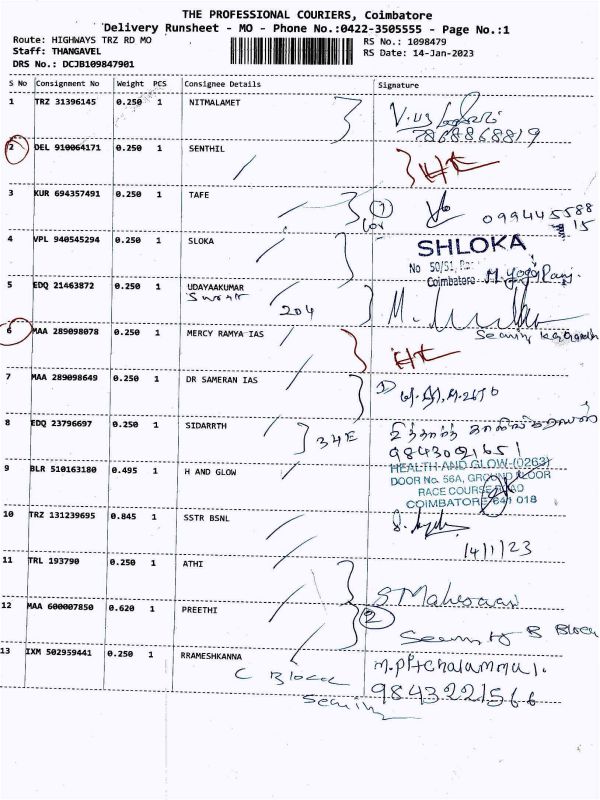 THE PROFESSIONAL COURIERS, Coimbatore
Delivery Runsheet - MO - Phone No.:0422-3505555 - Page No.:1
Route: HIGHWAYS TRZ RD MO
RS No.: 1098479
Staff: THANGAVEL
RS Date: 14-Jan-2023
DRS No.: DCJB109847901
S No Consignment No Weight PCS Consignee Details Signature
1 TRZ 31396145 0.250 1 NITMALAMET
7868868819
2 DEL 910064171 0.250 1 SENTHIL
3 KUR 694357491 0.250 1 TAFE
1
099445588
15
4 VPL 940545294 0.250 1 SLOKA
SHLOKA
No 50/51,
Coimbatore
5 EDQ 21463872 0.250 1 UDAYAAKUMAR
204
6 MAA 289098078 0.250 1 MERCY RAMYA IAS
7 MAA 289098649 0.250 1 DR SAMERAN IAS
8 EDQ 23796697 0.250 1 SIDARRTH
34E
9843021651
9 BLR 510163180 0.495 1 H AND GLOW
HEALTH AND GLOW-(0263)
DOOR No. 56A, GROUND FLOOR
RACE COURSE ROAD
COIMBATORE-641 018
10 TRZ 131239695 0.845 1 SSTR BSNL
14/1/23
11 TRL 193790 0.250 1 ATHI
S Maheswari
12 MAA 600007850 0.620 1 PREETHI
2
B Block
13 IXM 502959441 0.250 1 RRAMESHKANNA
C Block
9843221566